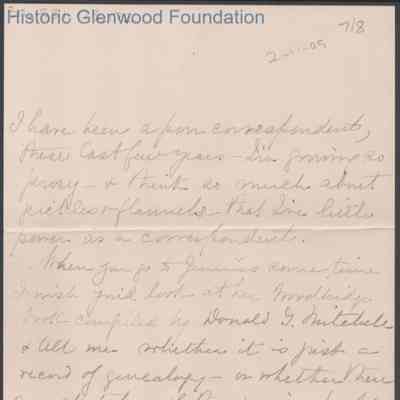 Historic Glenwood Foundation
7/8
2-11-05
I have been a poor correspondent,
these last few years - I'm growing so
prosy - & think so much about
pickles & flannels - that I've little
power as a correspondent.
When you go to Jennie's some time
I wish you'd look at her Woodbridge
book compiled by Donald G. Mitchell
& tell me whether it is just a
record of genealogy - or whether there